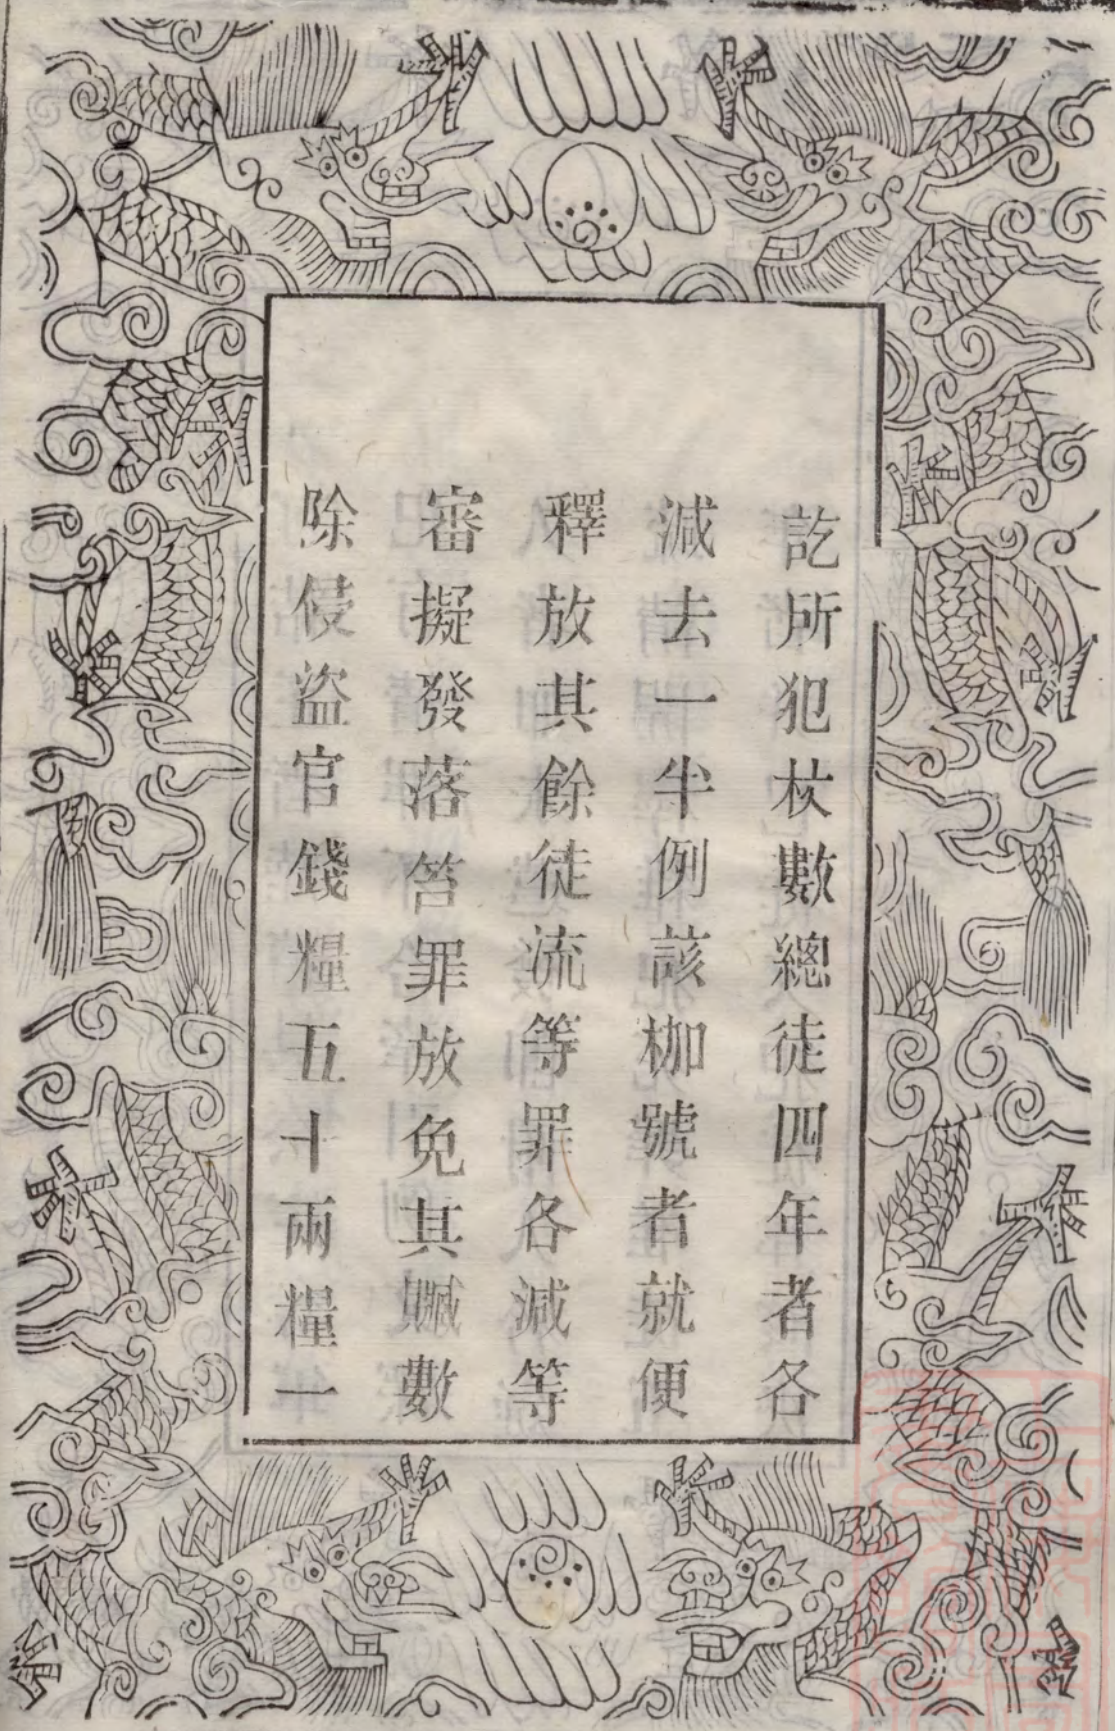 訖所犯杖數總徒四年者各
減去一半例該枷號者就便
釋放其餘徒流等罪各減等
審擬發落笞罪放免其贓數
除侵盜官錢糧五十兩糧一